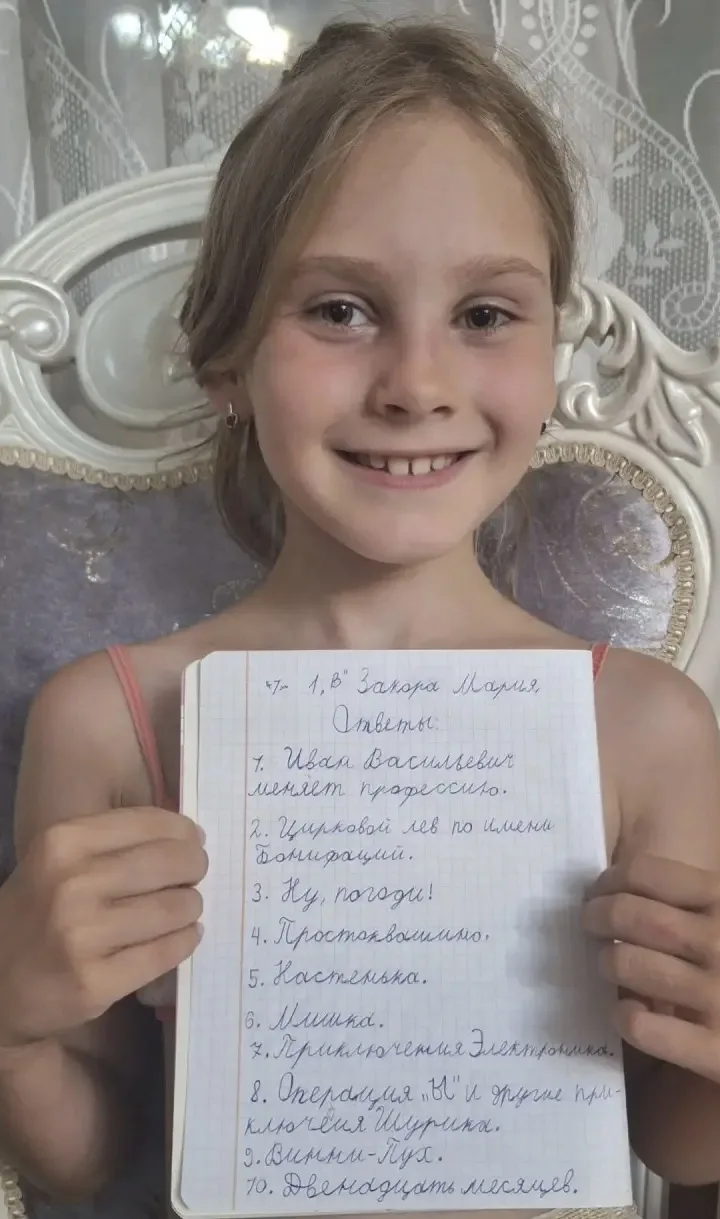 1„В" Закора Мария.
Ответы:
1. Иван Васильевич
меняет профессию.
2. Цирковой лев по имени
Бонифаций.
3. Ну, погоди!
4. Простоквашино.
5. Настенька.
6. Мишка.
7. Приключения Электроника.
8. Операция „Ы" и другие при-
ключения Шурика.
9. Винни-Пух.
10. Двенадцать месяцев.